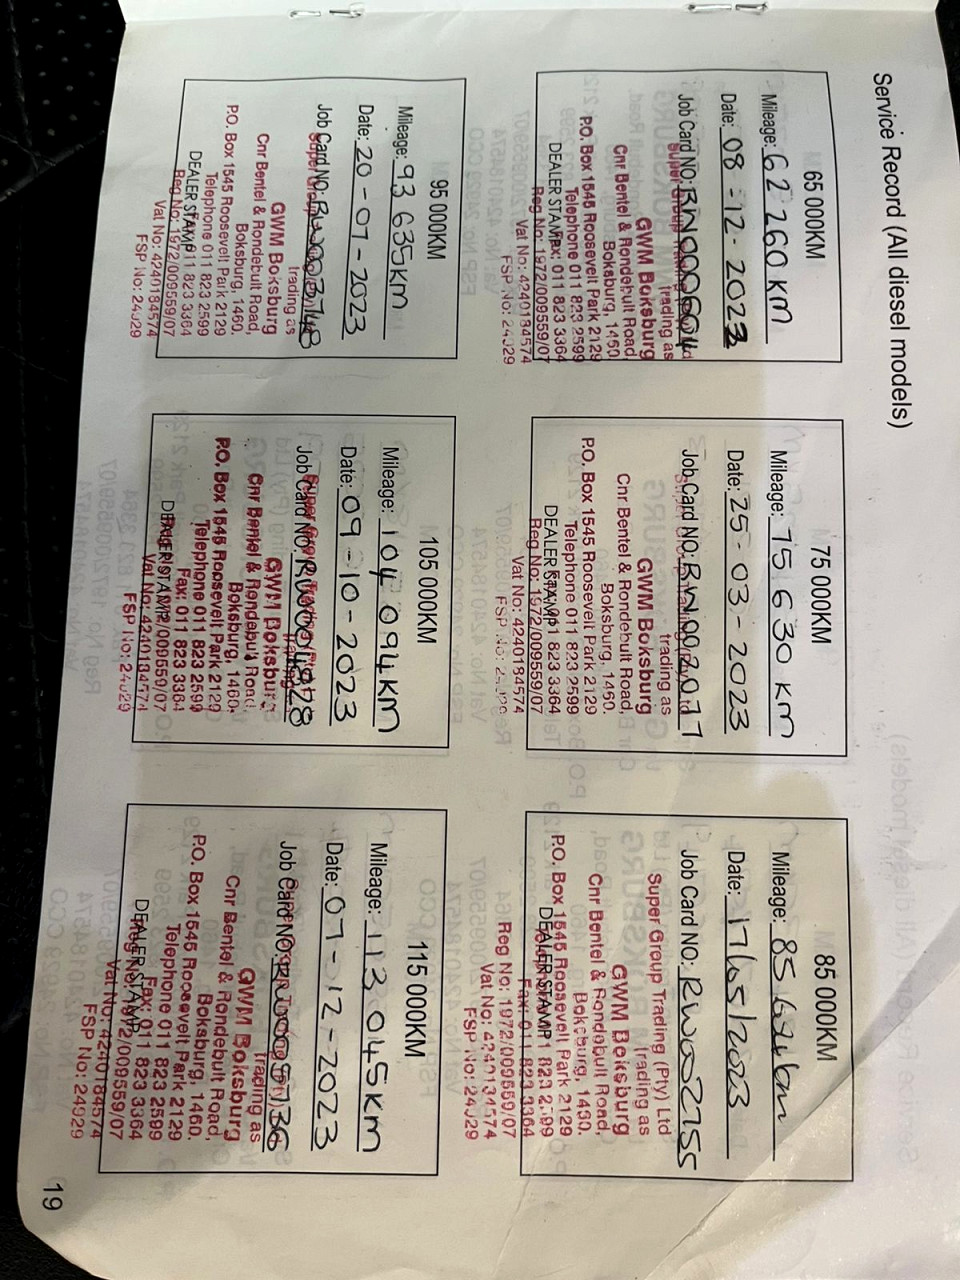 Service Record (All diesel models)
65 000KM
Mileage: 62 260 KM
Date: 08-12-2022
Job Card NO:
Super Group
trading as
GWM Boksburg
Cnr Bentel & Rondebult Road
Boksburg, 1460
P.O. Box 1545 Roosevelt Park 2129
Telephone 011 823 2599
DEALER STAMP
Fax: 011 823 3364
Reg No: 1972/009559/07
Vat No: 4240184574
FSP No: 24929
75 000KM
Mileage: 75 630 KM
Date: 25-03-2023
Job Card NO:
trading as
GWM Boksburg
Cnr Bentel & Rondebult Road,
Boksburg, 1460.
P.O. Box 1545 Roosevelt Park 2129
Telephone 011 823 2599
DEALER STAMP
Fax: 011 823 3364
Reg No: 1972/009559/07
Vat No: 4240184574
85 000KM
Mileage: 85
Date: 17/05/2023
Job Card NO: RW002755
Super Group Trading (Pty) Ltd
trading as
GWM Boksburg
Cnr Bentel & Rondebult Road,
Boksburg, 1460.
P.O. Box 1545 Roosevelt Park 2129
DEALER STAMP
Telephone 011 823 2599
Fax: 011 823 3364
Reg No: 1972/009559/07
Vat No: 4240184574
FSP No: 24929
95 000KM
Mileage: 93 635KM
Date: 20-07-2023
Job Card NO:
trading as
GWM Boksburg
Cnr Bentel & Rondebult Road,
Boksburg, 1460.
P.O. Box 1545 Roosevelt Park 2129
Telephone 011 823 2599
DEALER STAMP
011 823 3364
Reg No: 1972/009559/07
Vat No: 4240184574
FSP No: 24929
105 000KM
Mileage: 104 094KM
Date: 09-10-2023
Job Card NO: RW004828
GWM Boksburg
Cnr Bentel & Rondebult Road,
Boksburg, 1460.
P.O. Box 1545 Roosevelt Park 2129
Telephone 011 823 2599
Fax: 011 823 3364
DEALER STAMP
Vat No: 4240184574
FSP No: 24929
115 000KM
Mileage: 113 045KM
Date: 07-12-2023
Job Card NO: RW005736
trading as
GWM Boksburg
Cnr Bentel & Rondebult Road,
Boksburg, 1460.
P.O. Box 1545 Roosevelt Park 2129
Telephone 011 823 2599
Fax: 011 823 3364
DEALER STAMP
Reg No: 1972/009559/07
Vat No: 4240184574
FSP No: 24929
19